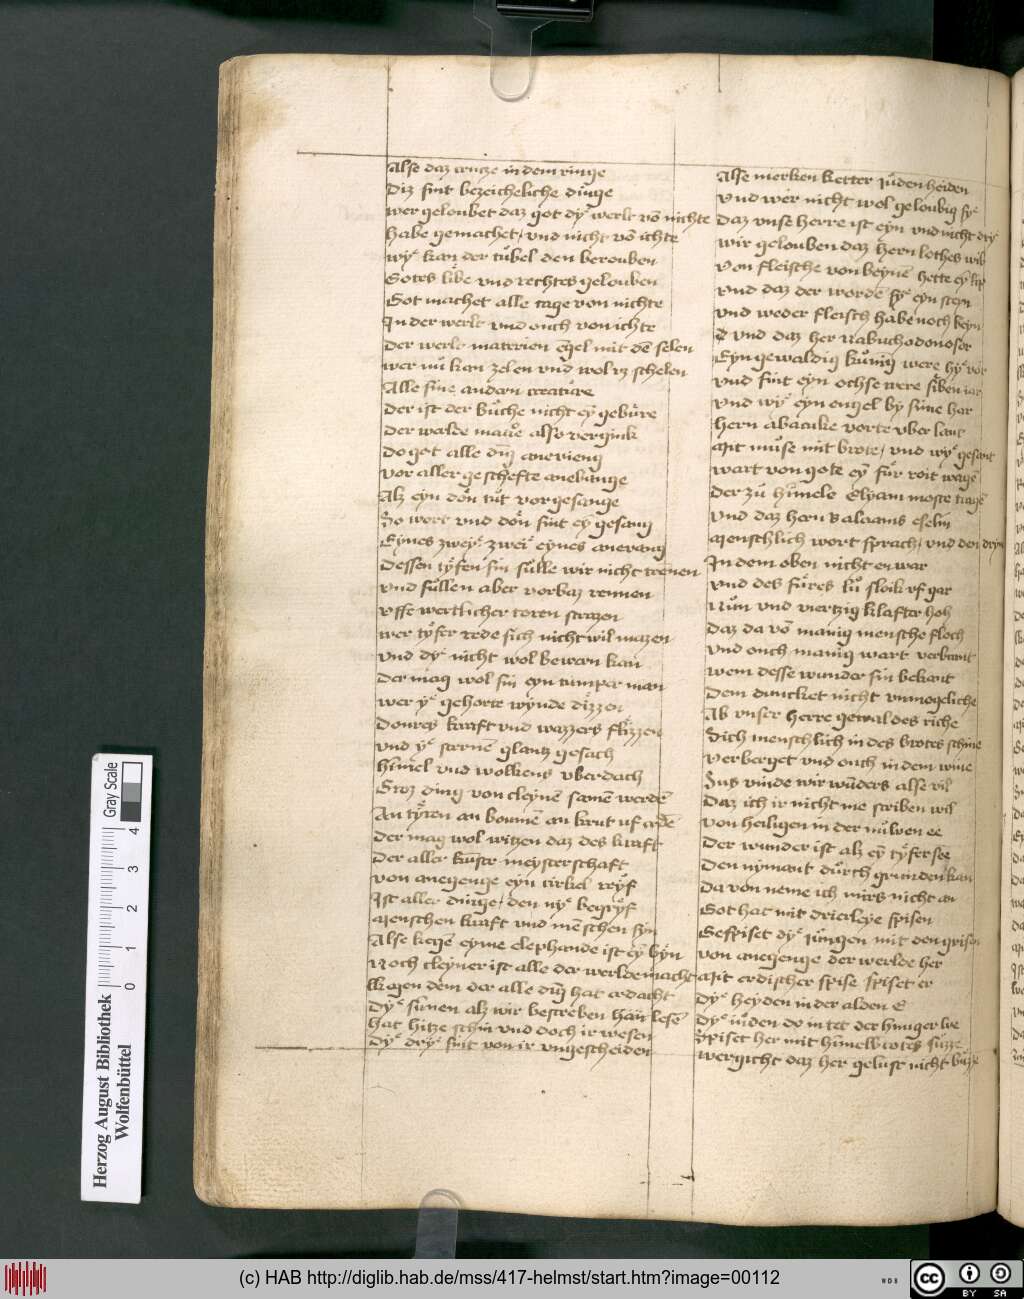 Alse daz crucze in dem ringe
Diz sint bezeicheliche dinge
wer geloubet daz got dy werlt vō nichte
habe gemachet, vnd nicht vō ichte
wy kan der tůbel den berouben
Gotes libe vnd rechtes gelouben
Got machet alle tage von nichte
In der werlt vnd ouch von ichte
Der werlt materien mit dē selen
wer nů kan zelen vnd wol schelen
Alle sine andern creatůre
Der ist der bůche nicht ey gebůre
Der walde also vergink
Do got alle ding anevieng
vor aller geschefte anebange
Alz eyn dōn tůt vorgesange
So wort vnd dōn sint ey gesang
Eynes zwey zwei eynes anevang
Dessen tyfen sin sulle wir nicht trēnen
vnd sullen aber vorbaz rennen
vffe wertlicher toren strazen
wer tyfer rede sich nicht wil mazen
vnd dy nicht wol bewern kan
Der mag wol sin eyn tumper man
wer y gehorte wynde dizzen
Donres kraft vnd wazzers flizzen
vnd y sterne glantz gesach
himel vnd wolkens vberdach
Groz ding von cleynē samē werdē
An tyren an boumē an krut vf erdē
Der mag wol witzen daz des kraft
Der aller kunst meysterschaft
von anegenge eyn cirkel reyf
Ist aller dinge, den ny begryf
Menschen kraft vnd mēschen syn
Alse kegē eyme elephande ist ey byn
Noch cleyner ist alle der werlde macht
Kegen dem der alle ding hat erdacht
Dy sunnen alz wir bescreben han lesē
hat hitze schin vnd doch ir wesen
Dy dry sint von ir vngescheiden
Alse merken ketter juden heiden
vnd wer nicht wol geloubig sy
Daz vnse herre ist eyn vnd nicht dry
wir gelouben daz hern lothes wib
von fleische von beynē hette ey lip
vnd daz der wordē sy eyn steyn
vnd weder fleisch habe noch beyn
vnd daz her nabuchodonosor
Eyn gewaldig kunig were hy vor
vnd sint eyn ochse were siben iar
vnd wy eyn engel by sime har
hern abacuke vorte vber lant
Mit muse mit brote, vnd wy gesant
wart von gote ey fůr roit wagē
Der zu himele Elyam moste tragē
vnd daz hern Balaams eselin
Menschlich wort sprach, vnd den dryn
In dem oben nicht en war
vnd des fůres lů sloik vf gar
Nun vnd viertzig klafter hoh
Daz da vō manig mensche floch
vnd ouch manig wart verbrant
wem desse wunder sin bekant
Dem duncket nicht vnmogeliche
Ab vnser herre gewaldes riche
Sich menschlich in des brotes schine
verberget vnd ouch in dem wine
Sus vinde wir wunders alse vil
Daz ich ir nicht me scriben wil
von heiligen in der nuwen ee
Der wunder ist alz ey tyfer see
Den nymant durch grunden kan
Da von neme ich mirs nicht an
Got hat mit drierleye spisen
Gespiset dy jungen mit den grisen
von anegenge der werlde her
Mit erdischer spise spiset er
Dy heyden in der alden E
Dy iuden do in tet der hunger we
Spiset her mit himelbrotes suzze
wergicht daz her gelust nicht buzze
Herzog August Bibliothek
Wolfenbüttel
0 1 2 3 4
Gray Scale
(c) HAB http://diglib.hab.de/mss/417-helmst/start.htm?image=00112
WDB
cc BY SA